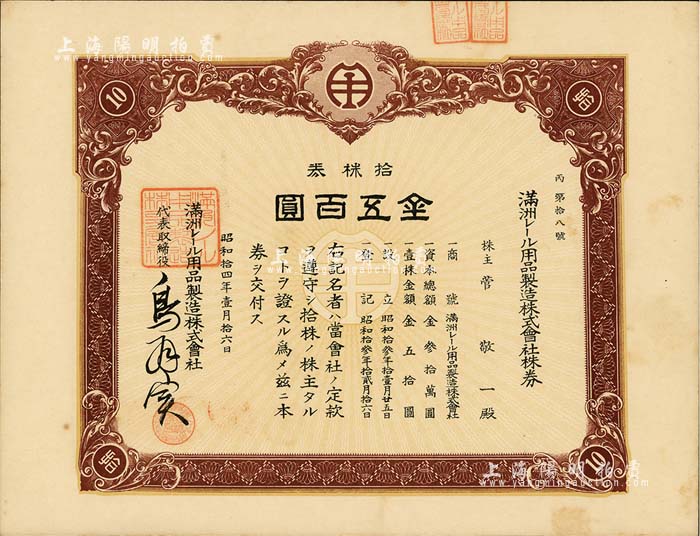 上海陽明拍賣
www.yangmingauction.com
10
拾
拾株券
金五百圓
丙第拾八號
滿洲レール用品製造株式會社株券
株主 菅敬一殿
一商號 滿洲レール用品製造株式會社
一資本總額 金參拾萬圓
一壹株金額 金五拾圓
一設立 昭和拾參年拾壹月廿五日
一登記 昭和拾參年拾貳月拾六日
右記名者ハ當會社ノ定款
ヲ遵守シ拾株ノ株主タル
コトヲ證スル爲メ玆ニ本
券ヲ交付ス
昭和拾四年壹月拾六日
滿洲レール用品製造株式會社
代表取締役
拾
10
上海陽明拍賣
www.yangmingauction.com